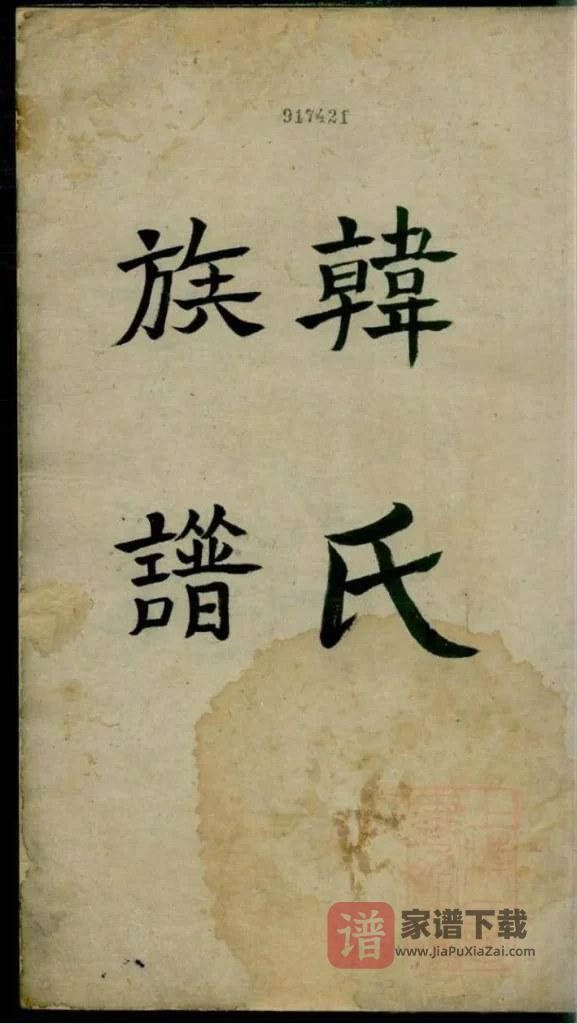 917421
韓氏
族譜
谱 家谱下载
www.JiaPuXiaZai.com